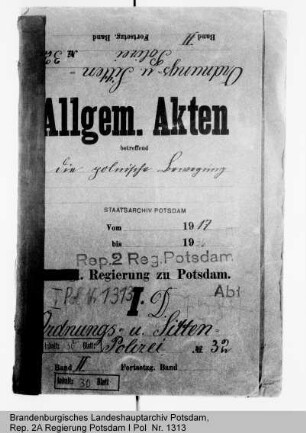 Band II Fortsetzg. Band
Polizei № 32
Ordnungs- u. Sitten-
Allgem. Akten
betreffend
die polnische Bewegung
STAATSARCHIV POTSDAM
Vom 1912
bis 19
Rep. 2 Reg. Potsdam
l. Regierung zu Potsdam.
I Pol Nr. 1313
Abt
I. D.
Ordnungs- u. Sitten-
Inhalts 30 Blatt
Polizei № 32
Band II Fortsetzg. Band
Inhalts 30 Blatt
Brandenburgisches Landeshauptarchiv Potsdam,
Rep. 2A Regierung Potsdam I Pol Nr. 1313